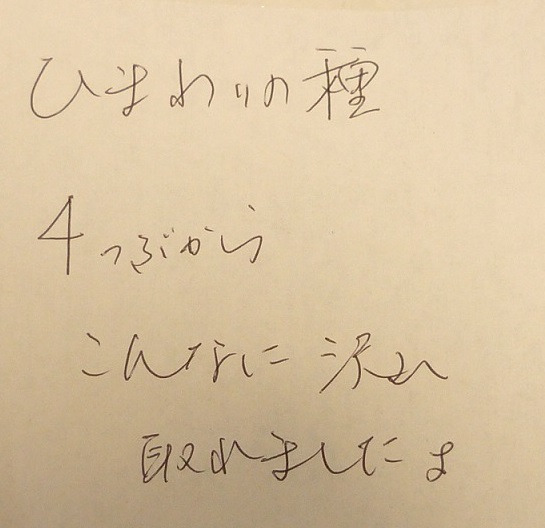 ひまわりの種
4つぶから
こんなに沢山
取れましたよ